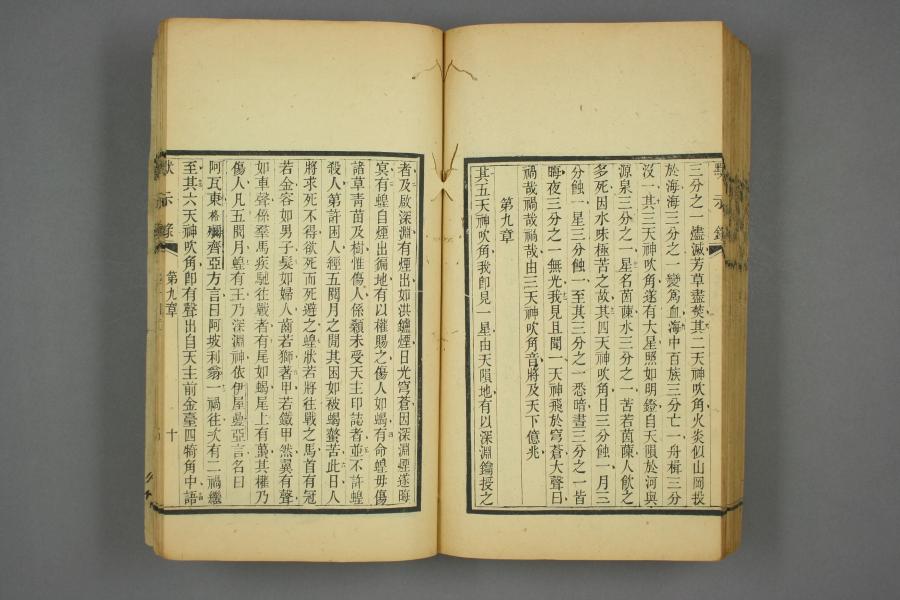 三分之一燼滅芳草盡焚其二天神吹角火炎似山岡投
於海海三分之一變爲血海中百族三分亡一舟楫三分
沒一其三天神吹角遂有大星照如明鐙自天隕於河與
源泉三分之一星名茵蔯水三分之一苦若茵蔯人飲之
多死因水味極苦之故其四天神吹角日三分蝕一月三
分蝕一星三分蝕一至其三分之一悉暗晝三分之一皆
晦夜三分之一無光我見且聞一天神飛於穹蒼大聲曰
禍哉禍哉禍哉由三天神吹角音將及天下億兆
第九章
其五天神吹角我卽見一星由天隕地有以深淵鑰授之
者及啟深淵有煙出如洪鑪煙日光穹蒼因深淵煙遂晦
冥有蝗自煙出徧地有以權賜之傷人如蝎有命蝗毋傷
諸草青苗及樹惟傷人係顙未受天主印誌者並不許蝗
殺人第許困人經五閱月之閒其困如被蝎螫苦此日人
將求死不得欲死而死避之蝗狀若將往戰之馬首有冠
若金容如男子髮如婦人齒若獅著甲若鐵甲然翼有聲
如車聲係羣馬疾馳往戰者有尾如蝎尾上有蠆其權乃
傷人凡五閱月蝗有王乃深淵神依伊屋亞言名曰
阿瓦東齊亞方言曰阿坡利翁一禍往次有二禍繼
至其六天神吹角卽有聲出自天主前金臺四犄角中語
默示錄
第九章
十